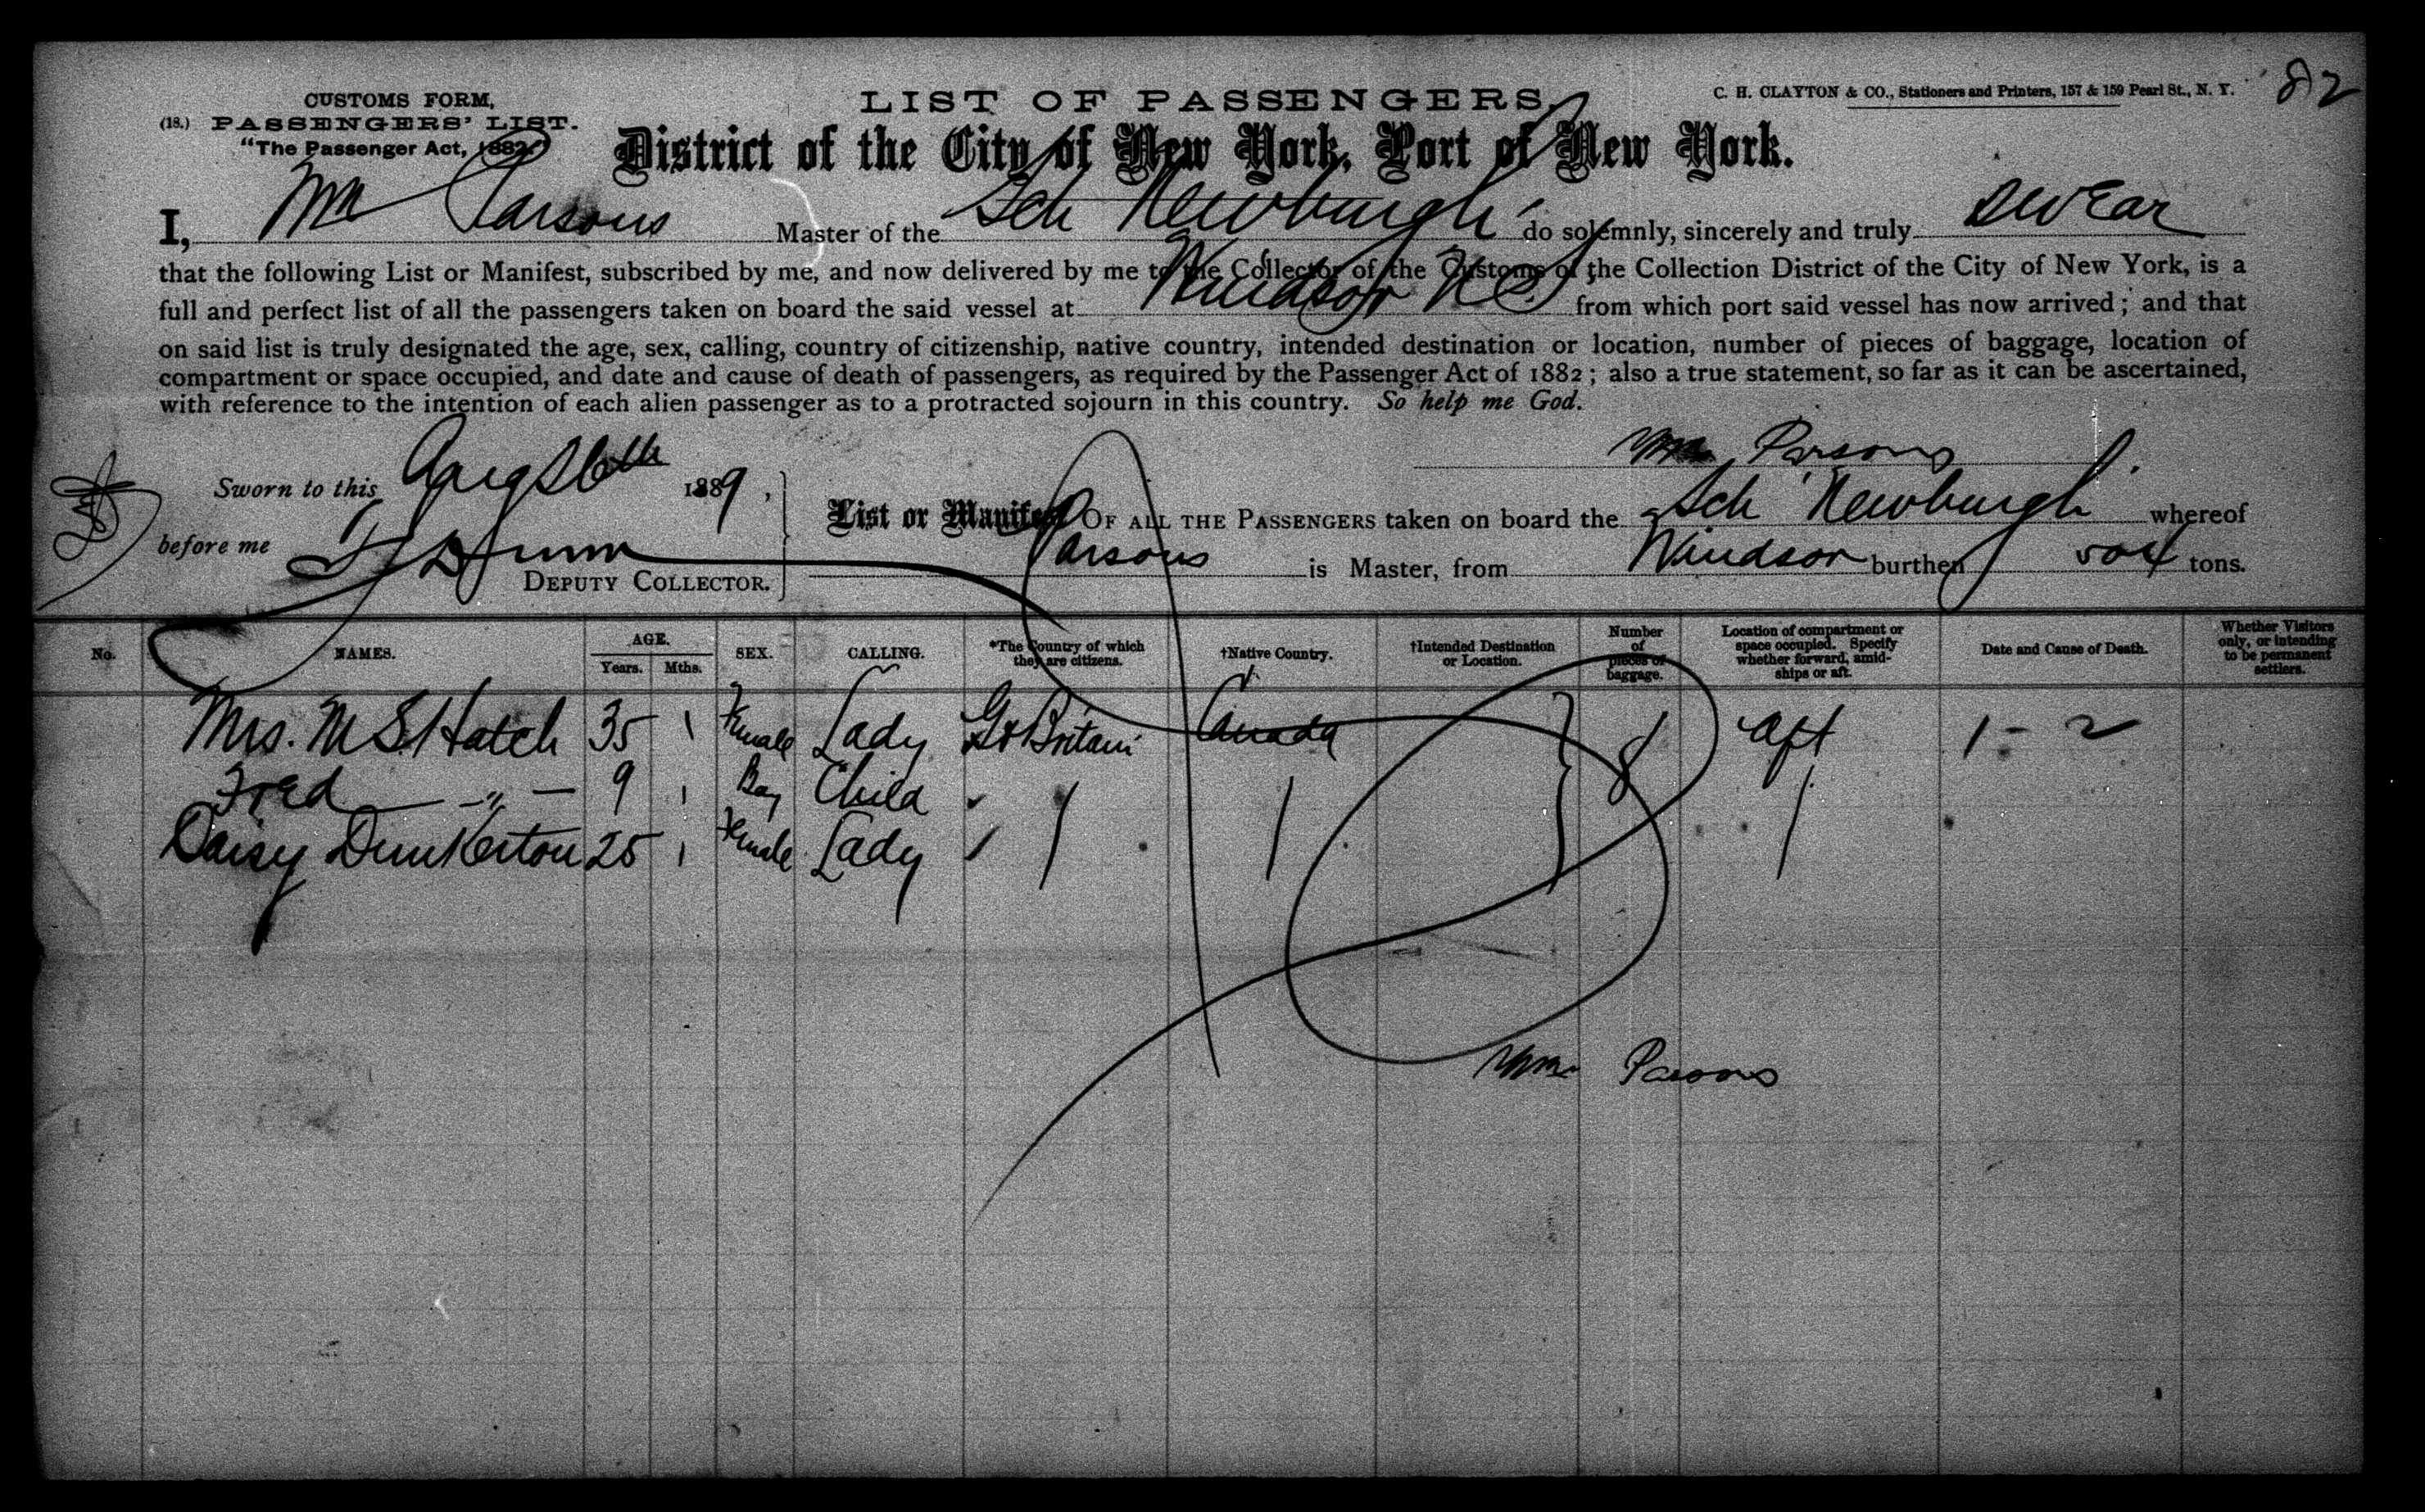 CUSTOMS FORM,
(18.) PASSENGERS' LIST.
"The Passenger Act, 1882."
LIST OF PASSENGERS,
C. H. CLAYTON & CO., Stationers and Printers, 157 & 159 Pearl St., N. Y.
82
District of the City of New York, Port of New York.
I, Wm Parsons Master of the Sch Newburgh do solemnly, sincerely and truly swear
that the following List or Manifest, subscribed by me, and now delivered by me to the Collector of the Customs of the Collection District of the City of New York, is a
full and perfect list of all the passengers taken on board the said vessel at Windsor N.S. from which port said vessel has now arrived; and that
on said list is truly designated the age, sex, calling, country of citizenship, native country, intended destination or location, number of pieces of baggage, location of
compartment or space occupied, and date and cause of death of passengers, as required by the Passenger Act of 1882; also a true statement, so far as it can be ascertained,
with reference to the intention of each alien passenger as to a protracted sojourn in this country. So help me God.
Wm Parsons
Sworn to this Aug 1889,
before me
DEPUTY COLLECTOR.
List or Manifest OF ALL THE PASSENGERS taken on board the Sch Newburgh whereof
Parsons is Master, from Windsor burthen 504 tons.
No. NAMES. AGE. Years. Mths. SEX. CALLING. *The Country of which they are citizens. †Native Country. †Intended Destination or Location. Number of pieces of baggage. Location of compartment or space occupied. Specify whether forward, amidships or aft. Date and Cause of Death. Whether Visitors only, or intending to be permanent settlers.
Mrs. M S Hatch 35 Female Lady Gt Britain Canada 8 aft 1 - 2
Fred — " — 9 Boy Child
Daisy Dunkerton 25 Female Lady
Wm Parsons